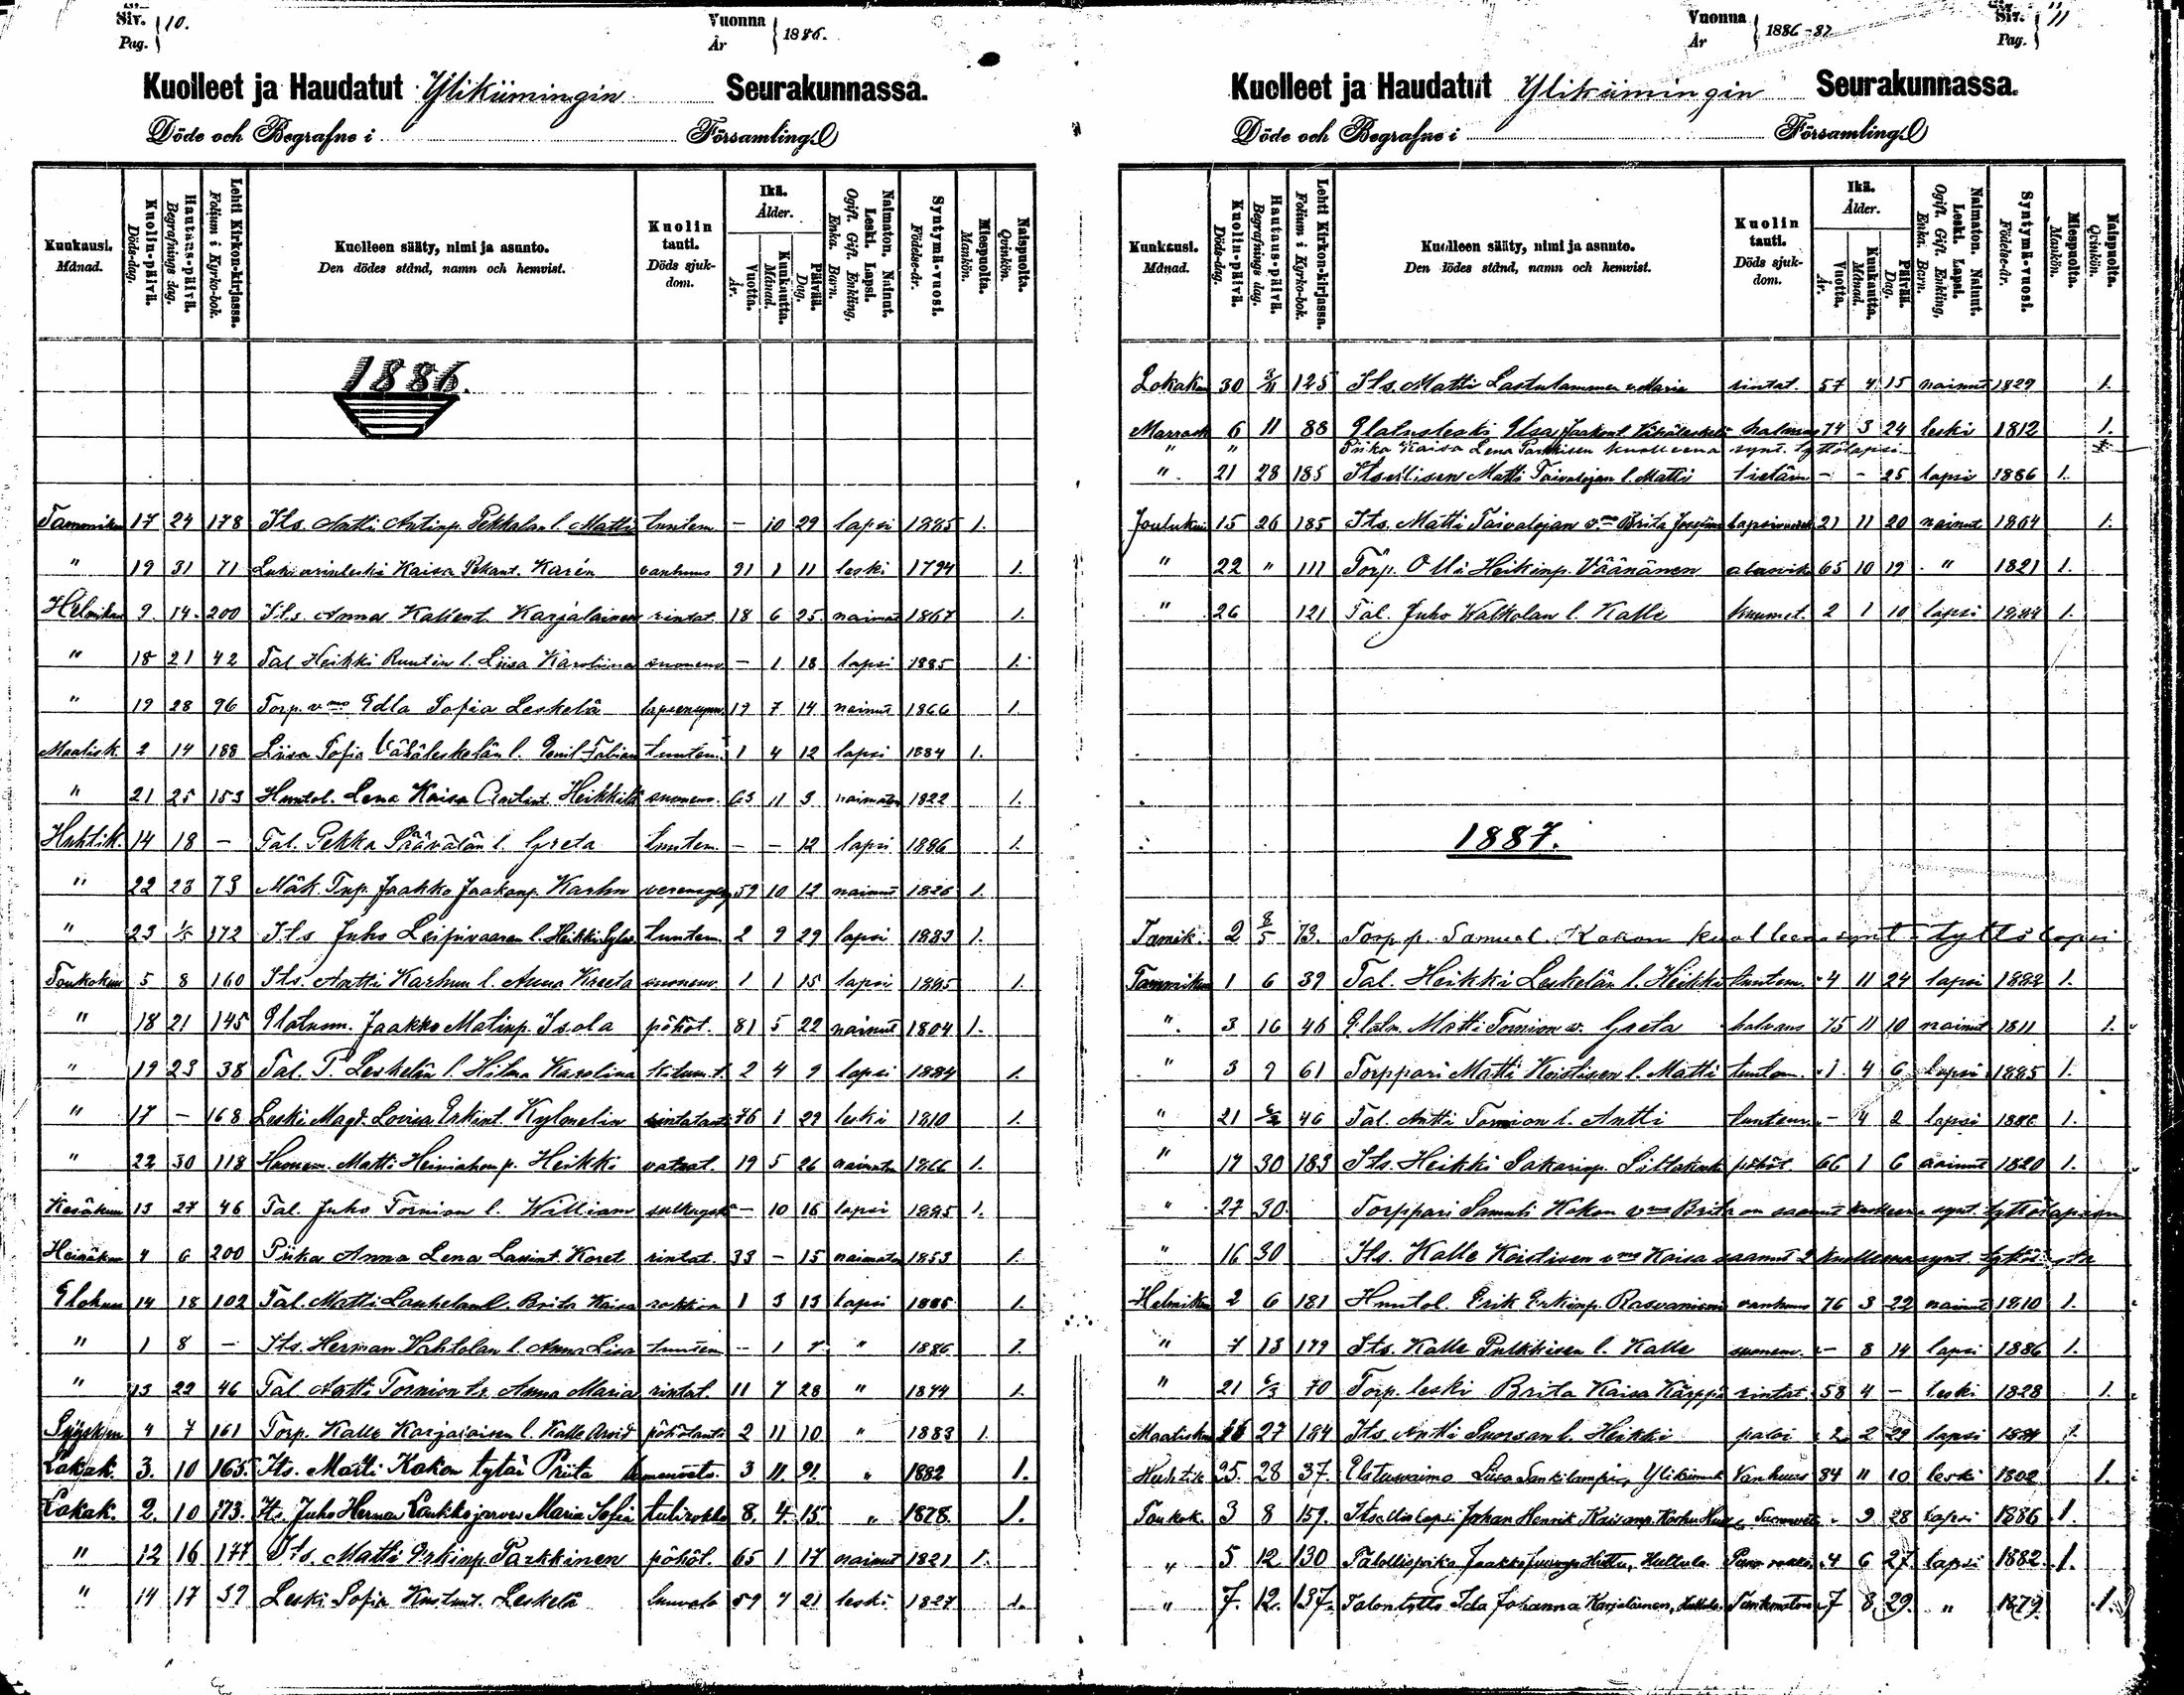 Siv. Pag. 10.
Vuonna År 1886.
Kuolleet ja Haudatut Ylikiimingin Seurakunnassa.
Döde och Begrafne i Församling.
Kuukausi. Månad.
Kuolin-päivä. Döds-dag.
Hautaus-päivä. Begrafnings dag.
Lehti Kirkon-kirjassa. Folium i Kyrko-bok.
Kuolleen sääty, nimi ja asunto. Den dödes stånd, namn och hemvist.
Kuolin tauti. Döds sjukdom.
Ikä. Ålder.
Vuotta. År.
Kuukautta. Månad.
Päivää. Dag.
Naimaton. Nainut. Leski. Lapsi. Ogift. Gift. Enkling, Enka. Barn.
Syntymä-vuosi. Födelse-år.
Miespuolta. Mankön.
Naispuolta. Qvinkön.
1886.
Tammikuu 17 24 178 Its. Antti Antinp. Pekkalan l. Matti tuntem. – 10 29 lapsi 1885 1.
" 19 31 71 Lukkarinleski Kaisa Pekant. Karén vanhuus 91 1 11 leski 1794 1.
Helmikuu 9 14 200 Its. Anna Kallent. Karjalainen rintat. 18 6 25 1867 1.
" 18 21 42 Tal. Heikki Ruutin l. Liisa Karoliina suonenv. – 1 18 lapsi 1885 1.
" 19 28 96 Torp. vmo Edla Sofia Leskelä lapsensynn. 19 7 14 nainut 1866 1.
Maalisk. 2 14 188 Liisa Sofia Vähäleskelän l. Emil Fabian tuntem. 1 4 12 lapsi 1884 1.
" 21 25 153 Huutol. Lena Kaisa Antint. Heikkilä suonenv. 63 11 3 naimaton 1822 1.
Huhtik. 14 18 – Tal. Pekka Päävälän l. Greta tuntem. – – 12 lapsi 1886 1.
" 22 23 73 Mäk. Tup. Jaakko Jaakonp. Karhu 59 10 12 nainut 1826 1.
" 23 1/5 172 Its. Juho Leipivaaran l. Heikki tuntem. 2 9 29 lapsi 1883 1.
Toukokuu 5 8 160 Its. Antti Karhun l. Anna Kreeta suonenv. 1 1 15 lapsi 1885 1.
" 18 21 145 Elatusm. Jaakko Matinp. Isola pöhöt. 81 5 22 nainut 1804 1.
" 19 23 38 Tal. P. Leskelän l. Hilma Karolina 2 4 9 lapsi 1884 1.
" 17 – 168 Leski Magd. Lovisa Erkint. Kylmelin rintatauti 76 1 29 leski 1810 1.
" 22 30 118 Matti Heiniahon p. Heikki vatsat. 19 5 26 naimaton 1866 1.
Kesäkuu 13 27 46 Tal. Juho Tornion l. William – 10 16 lapsi 1885 1.
Heinäkuu 4 6 200 Piika Anna Lena Laurint. Koret rintat. 33 – 15 naimaton 1853 1.
Elokuu 14 18 102 Tal. Matti Laukelan l. Brita Kaisa 1 3 13 lapsi 1885 1.
" 1 8 – Its. Herman Vahtolan l. Anna Lisa tuntem – 1 7 " 1886 1.
" 13 22 46 Tal. Antti Tornion tr. Anna Maria rintat. 11 7 28 " 1874 1.
Syyskuu 4 7 161 Torp. Kalle Karjalaisen l. Kalle Arvid pöhötauti 2 11 10 " 1883 1.
Lokak. 3. 10 165. Its. Matti Kokon tytär Priita 3 11 21. " 1882 1.
Lokak. 2. 10 173. It. Juho Herman Laukkojarven Maria Sofia tulirokko 8. 4. 15. " 1878. 1.
" 12 16 177 Its. Matti Erkinp. Parkkinen pöhöt. 65 1 17 nainut 1821 1.
" 14 17 59 Leski Sofia Kustunt. Leskelä 59 7 21 leski 1827 1.
Vuonna År 1886-87
Siv. Pag. 11
Kuolleet ja Haudatut Ylikiimingin Seurakunnassa.
Döde och Begrafne i Församling.
Kuukausi. Månad.
Kuolin-päivä. Döds-dag.
Hautaus-päivä. Begrafnings dag.
Lehti Kirkon-kirjassa. Folium i Kyrko-bok.
Kuolleen sääty, nimi ja asunto. Den dödes stånd, namn och hemvist.
Kuolin tauti. Döds sjukdom.
Ikä. Ålder.
Vuotta. År.
Kuukautta. Månad.
Päivää. Dag.
Naimaton. Nainut. Leski. Lapsi. Ogift. Gift. Enkling, Enka. Barn.
Syntymä-vuosi. Födelse-år.
Miespuolta. Mankön.
Naispuolta. Qvinkön.
Lokakuu 30 3/11 125 Its. Matti Lastulammen v. Maria rintat. 57 4 15 nainut 1829 1.
Marrask 6 11 88 Elatusleski Elsa Jaakont. Vähäleskelä halvaus 74 3 24 leski 1812 1.
" " Piika Kaisa Lena Parkkisen kuolleena synt. tyttölapsi
" 21 28 185 Itsellisen Matti Taivalojan l. Matti tietäm. – – 25 lapsi 1886 1.
Joulukuu 15 26 185 Its. Matti Taivalojan vmo Brita Josefina 21 11 20 nainut 1864 1.
" 22 " 111 Torp. Olli Heikinp. Väänänen 65 10 19 " 1821 1.
" 26 121 Tal. Juho Walkolan l. Kalle kuumet. 2 1 10 lapsi 1884 1.
1887.
Tamik. 2 8/5 73. Torp. p. Samuel Kokon kuolleena synt. tyttölapsi
Tammikuu 1 6 39 Tal. Heikki Leskelän l. Heikki tuntem. 4 11 24 lapsi 1882 1.
" 3 16 46 Elatm. Matti Tornion v. Greta halvaus 75 11 10 nainut 1811 1.
" 3 9 61 Torppari Matti Koistisen l. Matti tuntem. 1 4 6 lapsi 1885 1.
" 21 6/2 46 Tal. Antti Tornion l. Antti tuntem. – 4 2 lapsi 1886 1.
" 17 30 183 Its. Heikki Sakarinp. pöhöt. 66 1 6 nainut 1820 1.
" 27 30 Torppari Samuli Kokon vmo Brita on saanut kuolleena synt. tyttölapsen
" 16 30 Its. Kalle Koistisen vmo Kaisa saanut 2 kuolleena synt.
Helmikuu 2 6 181 Huutol. Erik Erkinp. vanhuus 76 3 22 nainut 1810 1.
" 7 13 179 Its. Kalle Pulkkisen l. Kalle suonenv. – 8 14 lapsi 1886 1.
" 21 6/3 70 Torp. leski Brita Kaisa Kärppä rintat. 58 4 – leski 1828 1.
Maaliskuu 26 27 184 Its. Antti Suorsan l. Heikki paloi 2 2 29 lapsi 1884 1.
Huhtik 25. 28 37. Elatusvaimo Liisa Sankilampi, Ylikiimink Vanhuus 84 11 10 leski 1802 1.
Toukok. 3 8 159. Itsellislapsi Johan Henrik Kaisanp. Karhu 9 28 lapsi 1886 1.
" 5 12 130 Talollispoika Jaakko Huttu, Huttula 4 6 27. lapsi 1882 1.
" 7. 12. 137. Talontyttö Ida Johanna Karjalainen, Tuntematon 7 8 29. " 1879. 1.